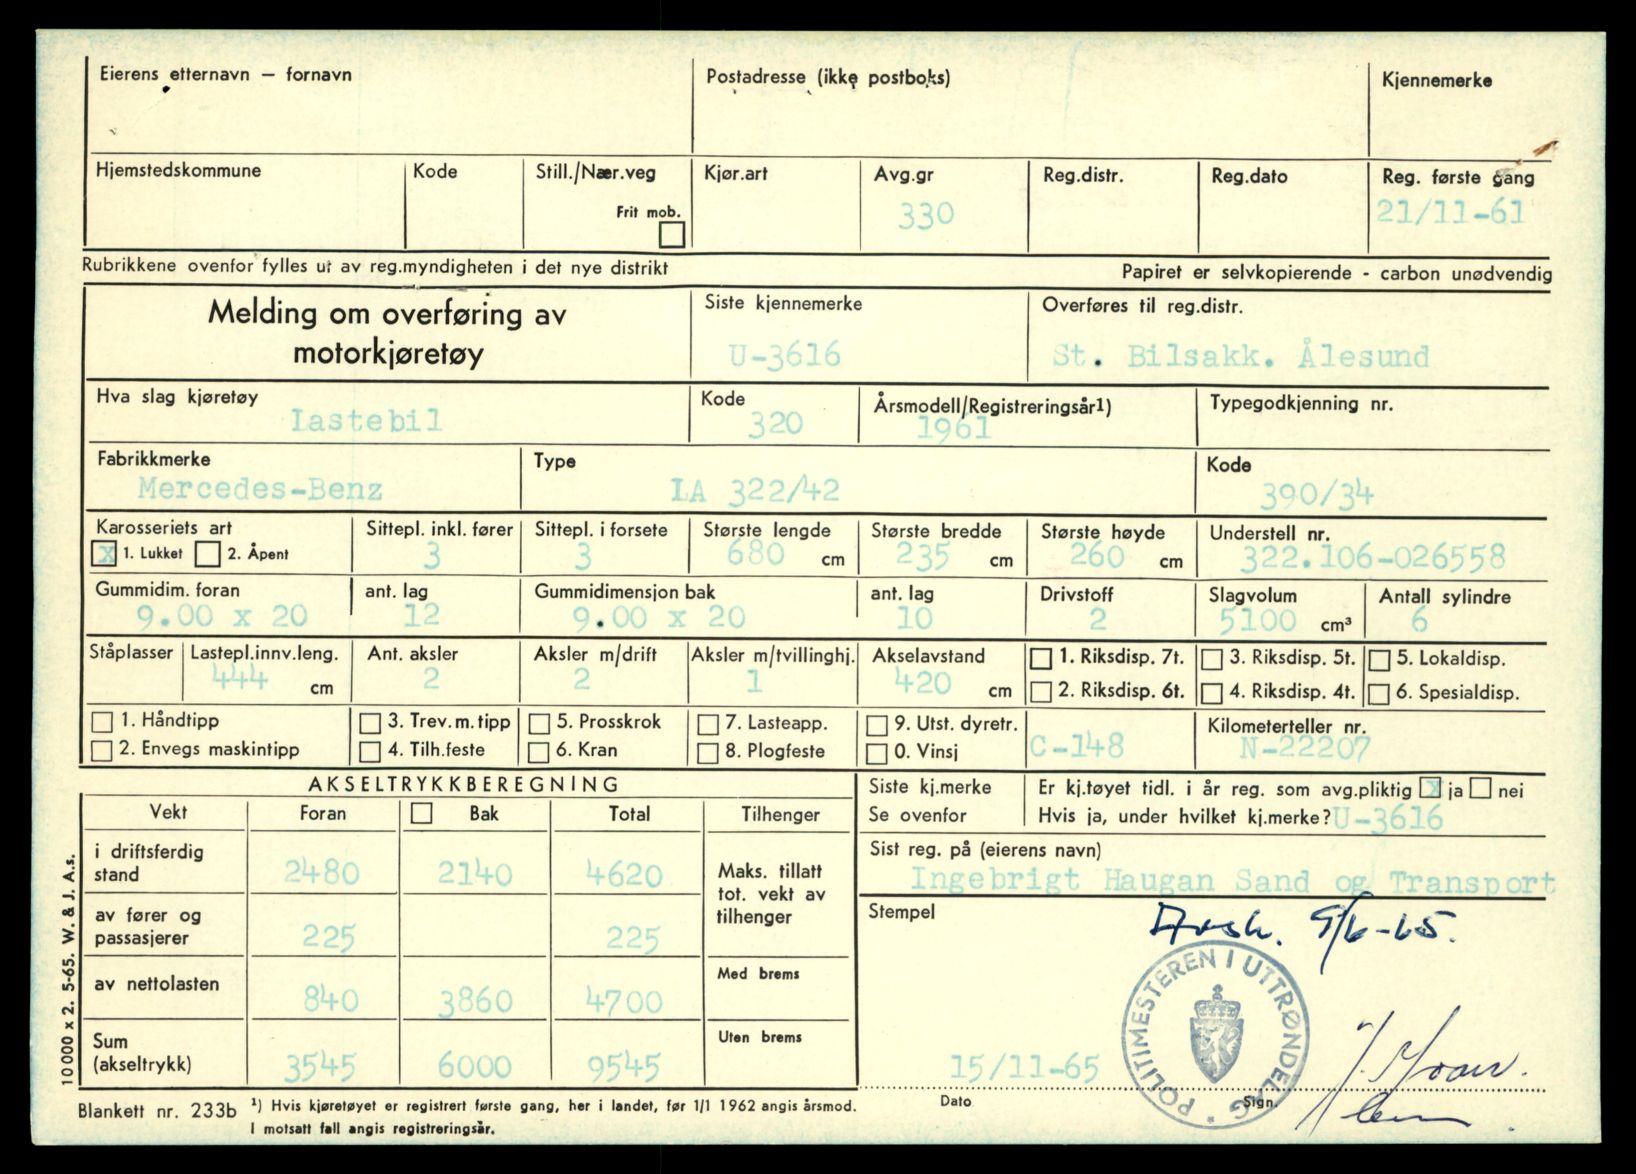 Eierens etternavn – fornavn
Postadresse (ikke postboks)
Kjennemerke
Hjemstedskommune
Kode
Still./Nær.veg
Frit mob.
Kjør.art
Avg.gr
330
Reg.distr.
Reg.dato
Reg. første gang
21/11-61
Rubrikkene ovenfor fylles ut av reg.myndigheten i det nye distrikt
Papiret er selvkopierende - carbon unødvendig
Melding om overføring av
motorkjøretøy
Siste kjennemerke
U-3616
Overføres til reg.distr.
St. Bilsakk. Ålesund
Hva slag kjøretøy
Lastebil
Kode
320
Årsmodell/Registreringsår1)
1961
Typegodkjenning nr.
Fabrikkmerke
Mercedes-Benz
Type
LA 322/42
Kode
390/34
Karosseriets art
x 1. Lukket 2. Åpent
Sittepl. inkl. fører
3
Sittepl. i forsete
3
Største lengde
680 cm
Største bredde
235 cm
Største høyde
260 cm
Understell nr.
322.106-026558
Gummidim. foran
9.00 x 20
ant. lag
12
Gummidimensjon bak
9.00 x 20
ant. lag
10
Drivstoff
2
Slagvolum
5100 cm³
Antall sylindre
6
Ståplasser
Lastepl.innv.leng.
444 cm
Ant. aksler
2
Aksler m/drift
2
Aksler m/tvillinghj.
1
Akselavstand
420 cm
1. Riksdisp. 7t. 3. Riksdisp. 5t. 5. Lokaldisp.
2. Riksdisp. 6t. 4. Riksdisp. 4t. 6. Spesialdisp.
1. Håndtipp 3. Trev. m. tipp 5. Prosskrok 7. Lasteapp. 9. Utst. dyretr.
2. Envegs maskintipp 4. Tilh.feste 6. Kran 8. Plogfeste 0. Vinsj
C-148
Kilometerteller nr.
N-22207
AKSELTRYKKBEREGNING
Vekt Foran Bak Total Tilhenger
i driftsferdig
stand
2480 2140 4620
av fører og
passasjerer
225 225
av nettolasten
840 3860 4700
Sum
(akseltrykk)
3545 6000 9545
Maks. tillatt
tot. vekt av
tilhenger
Med brems
Uten brems
Siste kj.merke
Se ovenfor
Er kj.tøyet tidl. i år reg. som avg.pliktig x ja nei
Hvis ja, under hvilket kj.merke? U-3616
Sist reg. på (eierens navn)
Ingebrigt Haugan Sand og Transport
Stempel
Avsk. 9/6-65.
POLITIMESTEREN I UTTRØNDELAG *
15/11-65
Dato
Sign.
10000 x 2. 5-65. W. & J. A.s.
Blankett nr. 233b
1) Hvis kjøretøyet er registrert første gang, her i landet, før 1/1 1962 angis årsmod.
I motsatt fall angis registreringsår.